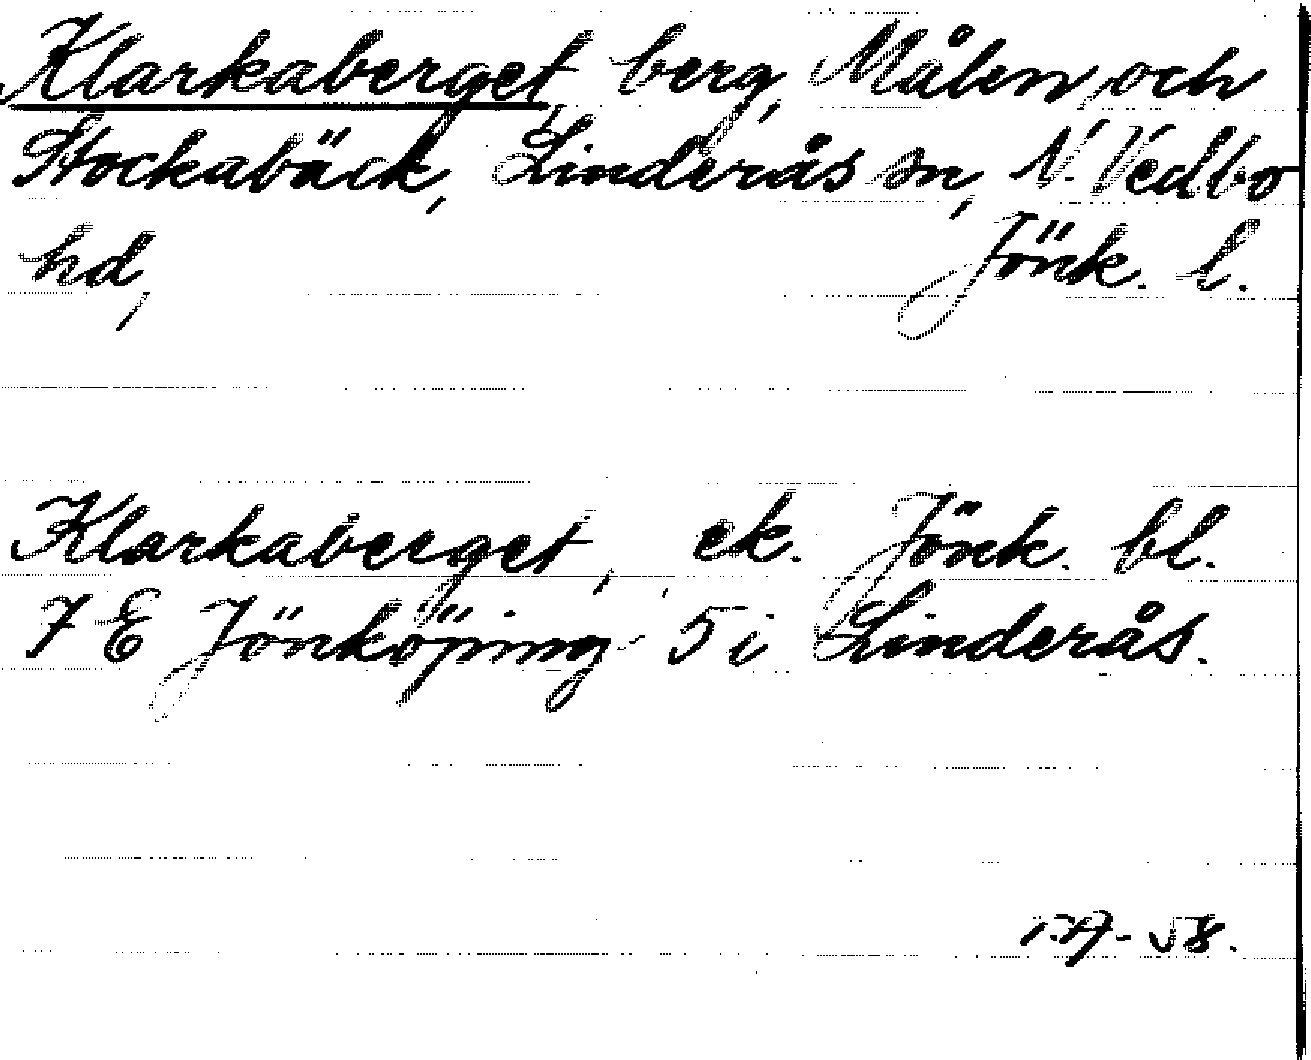 Klarkaberget, berg, Målen och
Stockabäck, Linderås sn, N. Vedbo
hd, Jönk. l.
Klarkaberget, ek. Jönk. bl.
7 E Jönköping 5 i Linderås.